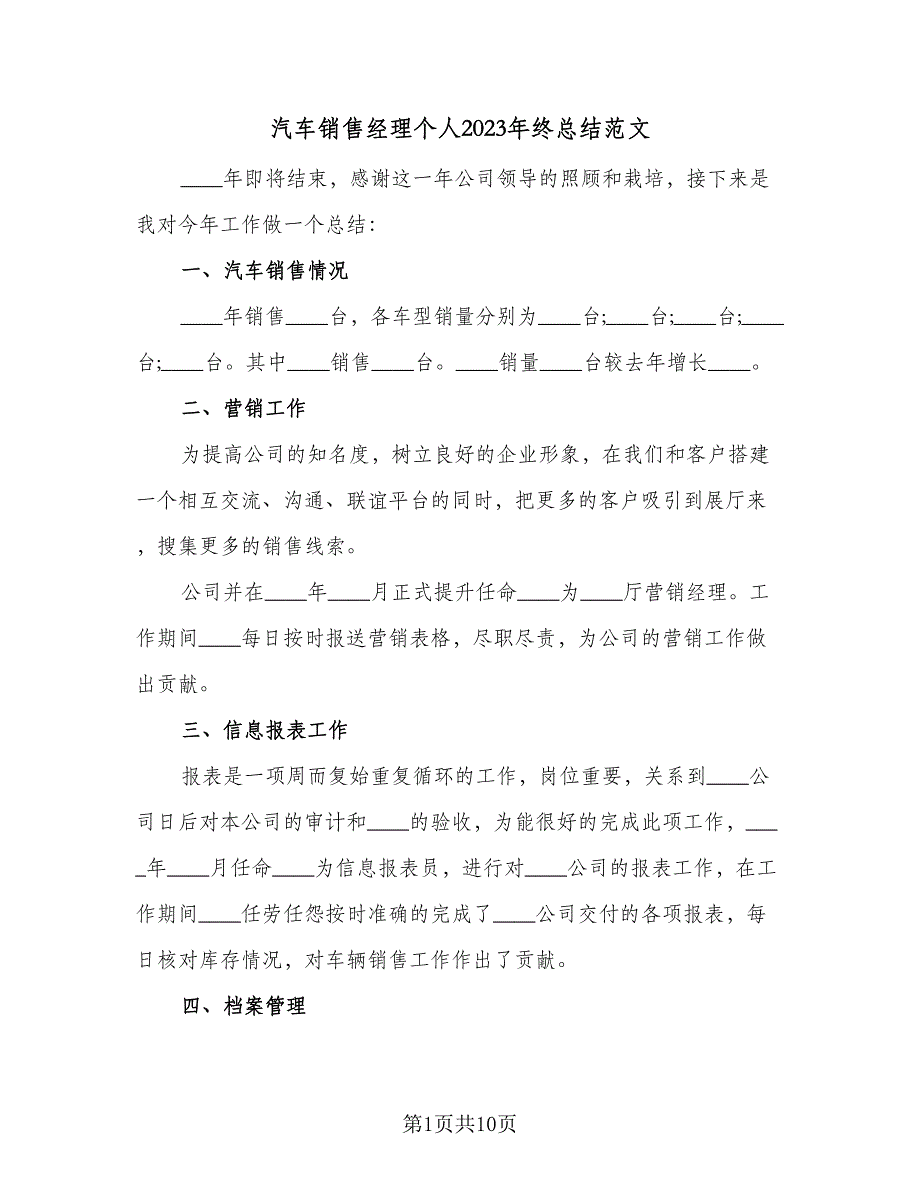 汽车销售经理个人2023年终总结范文
____年即将结束，感谢这一年公司领导的照顾和栽培，接下来是
我对今年工作做一个总结：
一、汽车销售情况
____年销售____台，各车型销量分别为____台;____台;____台;____
台;____台。其中____销售____台。____销量____台较去年增长____。
二、营销工作
为提高公司的知名度，树立良好的企业形象，在我们和客户搭建
一个相互交流、沟通、联谊平台的同时，把更多的客户吸引到展厅来
，搜集更多的销售线索。
公司并在____年____月正式提升任命____为____厅营销经理。工
作期间____每日按时报送营销表格，尽职尽责，为公司的营销工作做
出贡献。
三、信息报表工作
报表是一项周而复始重复循环的工作，岗位重要，关系到____公
司日后对本公司的审计和____的验收，为能很好的完成此项工作，___
_年____月任命____为信息报表员，进行对____公司的报表工作，在工
作期间____任劳任怨按时准确的完成了____公司交付的各项报表，每
日核对库存情况，对车辆销售工作作出了贡献。
四、档案管理
第1页共10页